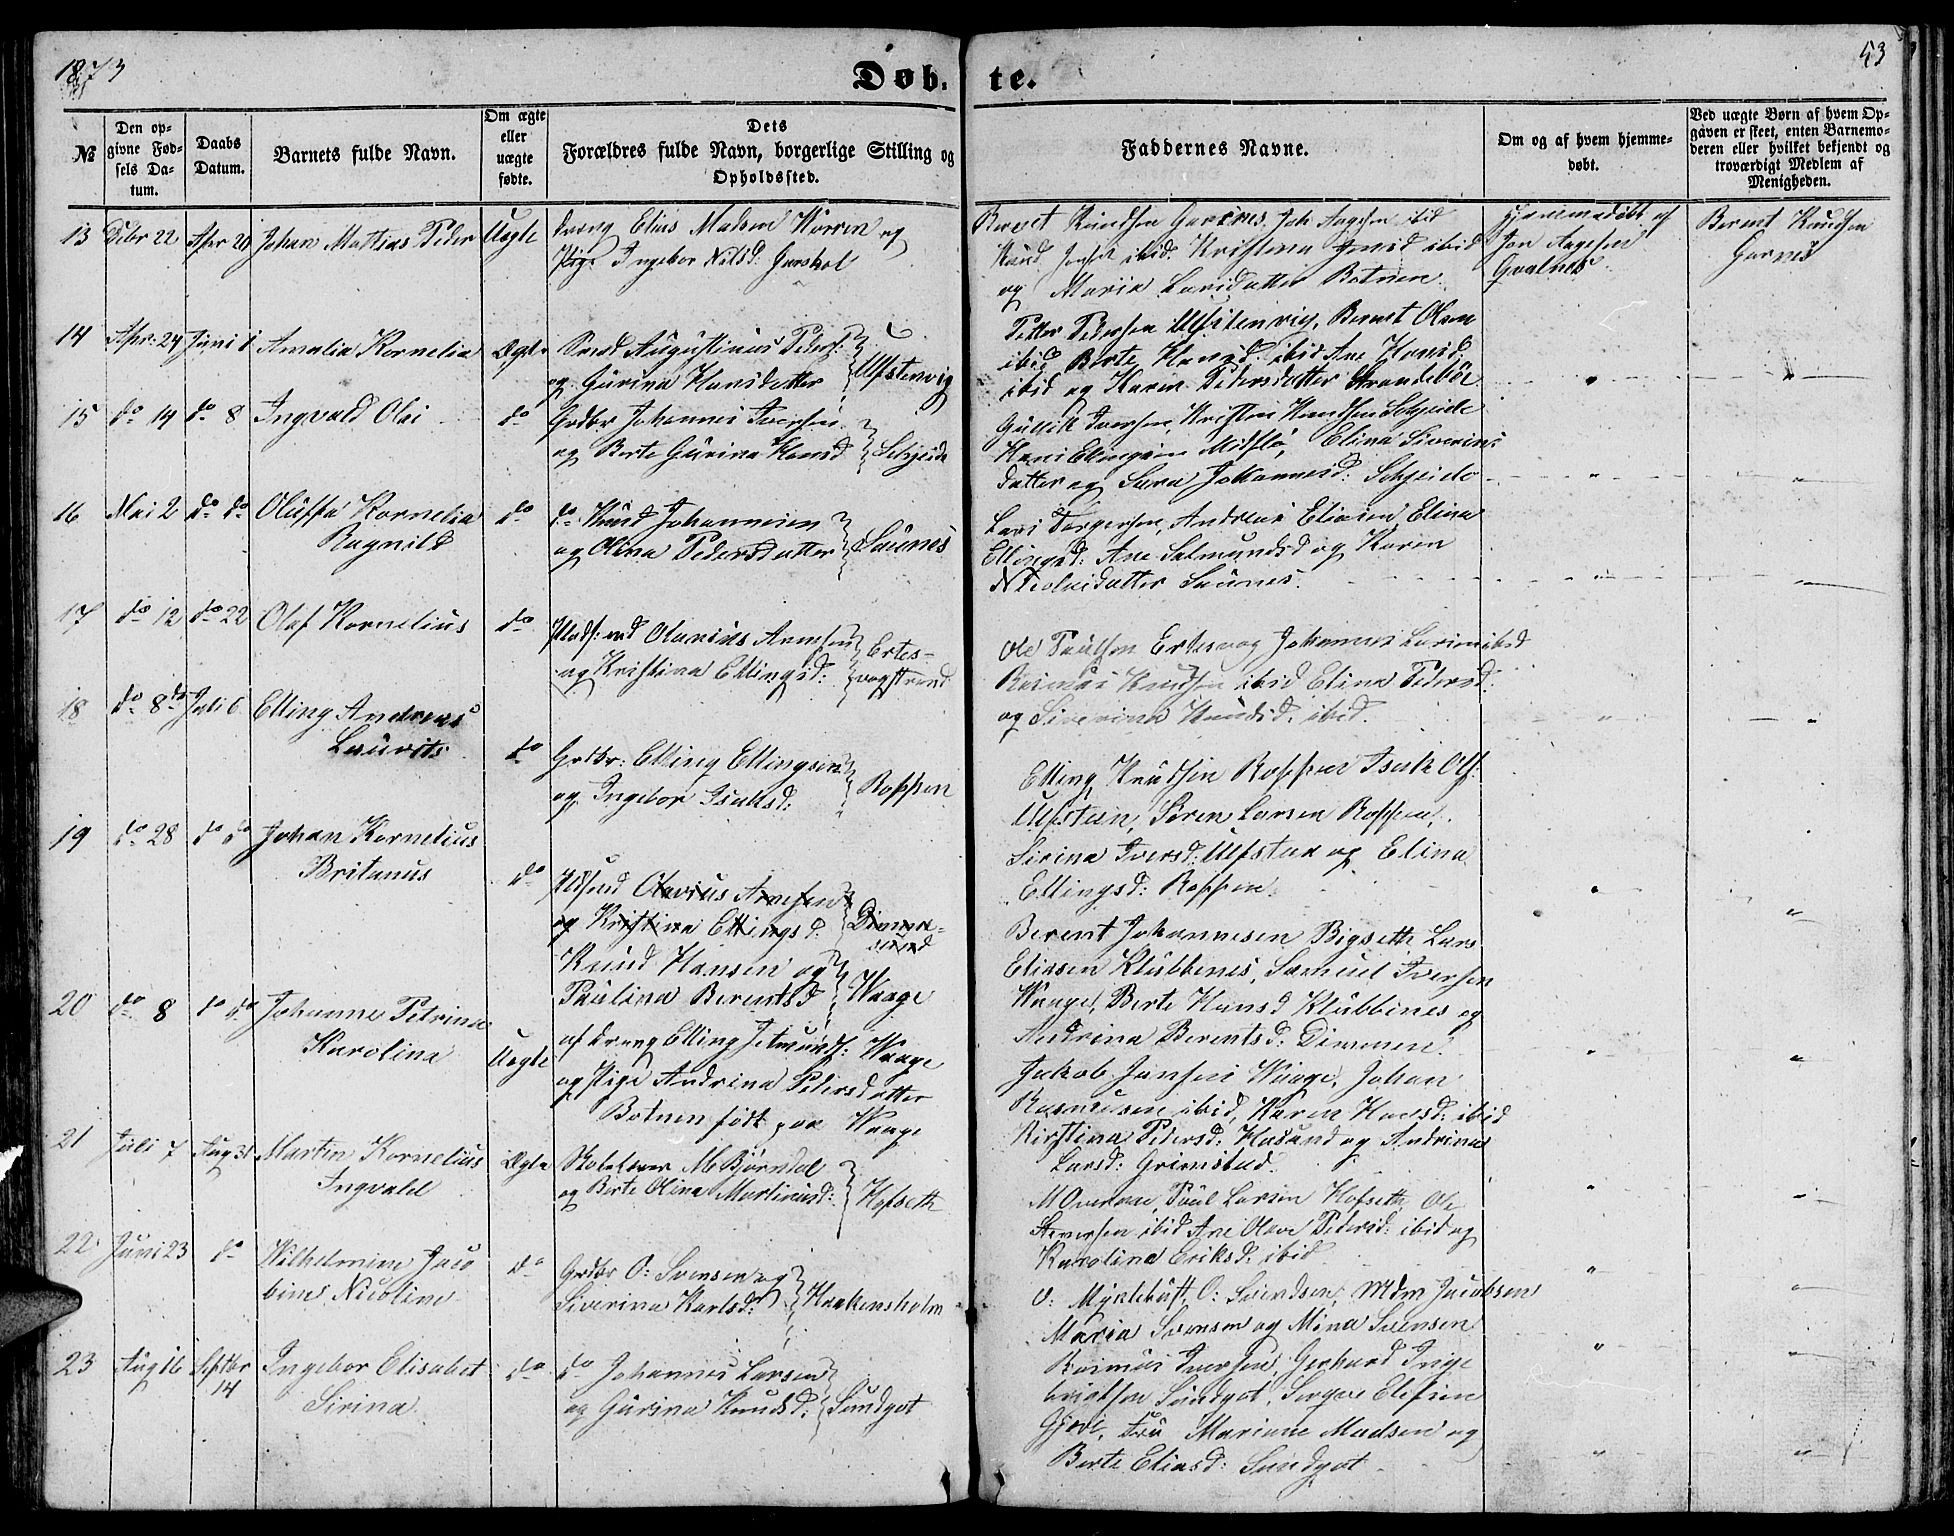 1873
Døb-
te.
53
№
Den op-
givne Fød-
sels Da-
tum.
Daabs
Datum.
Barnets fulde Navn.
Om ægte
eller
uægte
fødte.
Dets
Forældres fulde Navn, borgerlige Stilling og
Opholdssted.
Faddernes Navne.
Om og af hvem hjemme-
døbt.
Ved uægte Børn af hvem Op-
gaven er skeet, enten Barnemo-
deren eller hvilket bekjendt og
troværdigt Medlem af
Menigheden.
13 Debr 22 Apr 20 Johan Mattias Peder Uegte Dreng Elias Madsen Worren og
Pige Ingebor Nilsd: Gurskol
Berent Knudsen Garnes. Joh Aagesen ibid
Knud Jensen ibid. Kristina ibid
og Maria Larsdatter Botnen.
Hjemmedøbt af
Jon Aagesen
Berent Knudsen
Garnes
14 Apr. 24 Juni 1 Amalia Kornelia Ægte Augustinus Peders:
og Gurina Hansdatter Ulfstenvig
Petter Pedersen Ulfstenvig, Berent Olsen
ibid Berte Hansd. ibid Ane Hansd:
ibid og Karen Pedersdatter Strandebøe
15 do 14 do 8 Ingvald Olai do Grdbr Johannes Iversen
og Berte Gurina Hansd Schjeide
Gullik Iversen, Kristen Knudsen Schjeide
Hans Ellingsen Mitflø, Elina Siverins
datter og Sara Johannesd: Schjeide
16 Mai 2 do do Oluffa Kornelia
Ragnild
do do Knud Johannesen
og Olina Pedersdatter Saunes
Lars Torgersen, Andreas Eliasen Elina
Ellingsd: Ane Salmundsd og Karen
Nicolaidatter Saunes.
17 do 12 do 22 Olaf Kornelius do Pladsmd Olanius Arnesen
og Kristina Ellingsd: Ertes-
vagstrand
Ole Paulsen Ertesvag Johannes Larsen ibid
Rasmus Knudsen ibid Elina Pedersd:
og Siverina Knudsd. ibid.
18 do 8 do Juli 6 Elling Andreas
Laurits
do Grdbr: Elling Ellingsen
og Ingebor Isaksd: Roppen
Elling Knudsen Roppen Isak Ols:
Ulfsten, Søren Larsen Roppen,
Sirina Iversd: Ulfsten og Elina
Ellingsd: Roppen.
19 do 28 do do Johan Kornelius
Britanus
do Pldsmd Olavius Arnesen
og Kristina Ellingsd: Dimna-
sund
Knud Hansen og
Paulina Berentsd Waage
Berent Johannesen Bigseth Lars
Eliasen Klubbenes, Samuel Iversen
Waage, Berte Hansd Klubbines og
Andrina Berentsd: Dimmen.
20 do 8 do do Johanne Petrina
Karolina
Uegte af Dreng Elling Jetmunds: Waage
og Pige Andrina Pedersdatter
Botnen født paa Waage
Jakob Jansen Waage, Johan
Rasmussen ibid, Karen Hansd: ibid
Kirstina Pedersd: Hasund og Andrina
Larsd: Grimstad.
21 Juli 7 Aug 31 Martin Kornelius
Ingvald
Ægte Skolelærer M Bjørndal
og Berte Olina Martinusd: Hofseth
M Overaae, Paul Larsen Hofseth, Ole
Steversen ibid Ane Olave Pedersd: ibid og
Karolina Eriksd: ibid
22 Juni 23 do Wilhelmine Jaco
bine Nicoline
do Grdbr O: Svensen og
Siverina Karlsd: Haakensholm
O: Myklebust, O: Svendsen, Mdm Jacobsen
Maria Svensen og Mina Svensen
23 Aug 16 Septbr
14
Ingebor Elisabet
Sirina
do do Johannes Larsen
og Gurina Knudsd: Sundgot
Rasmus Iversen, Gerhard Inge
brigtsen Sundgot, Eliasen
Gjøvi, Fru Mariane Madsen og
Berte Eliasd: Sundgot